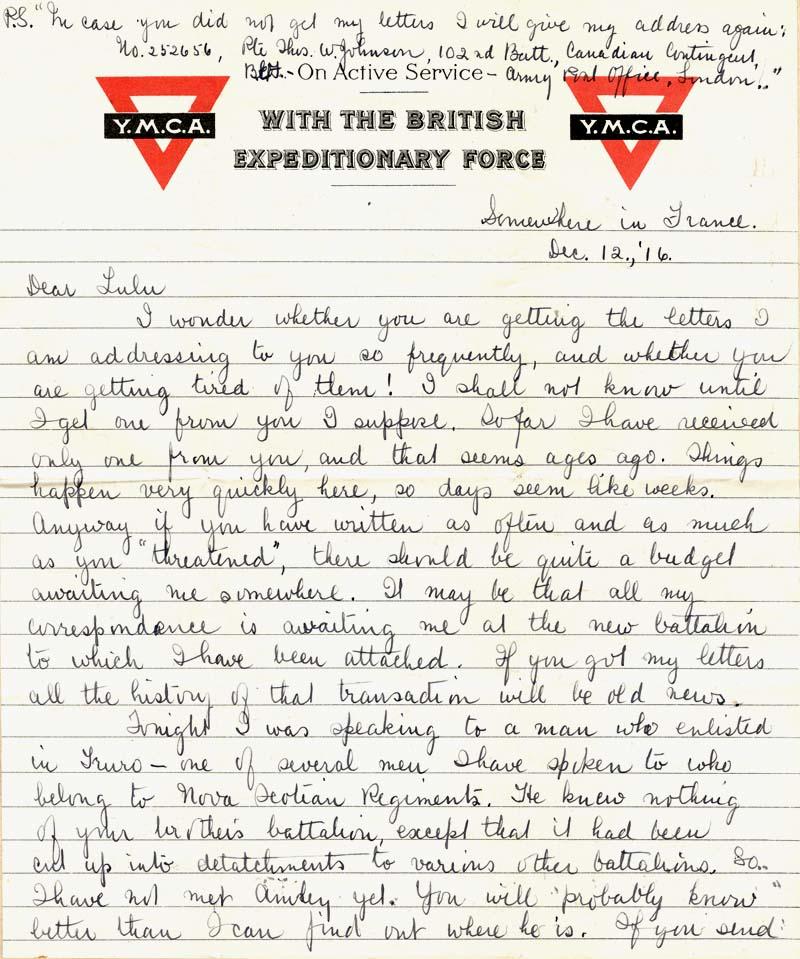 P.S. "In case you did not get my letters I will give my address again:
No. 252656, Pte Thos. W. Johnson, 102nd Batt., Canadian Contingent,
- On Active Service - Army Post Office, London.."
Y.M.C.A.
WITH THE BRITISH
EXPEDITIONARY FORCE
Y.M.C.A.
Somewhere in France.
Dec. 12., '16.
Dear Lulu
I wonder whether you are getting the letters I
am addressing to you so frequently, and whether you
are getting tired of them! I shall not know until
I get one from you I suppose. So far I have received
only one from you, and that seems ages ago. Things
happen very quickly here, so days seem like weeks.
Anyway if you have written as often and as much
as you "threatened", there should be quite a budget
awaiting me somewhere. It may be that all my
correspondence is awaiting me at the new battalion
to which I have been attached. If you got my letters
all the history of that transaction will be old news.
Tonight I was speaking to a man who enlisted
in Truro - one of several men I have spoken to who
belong to Nova Scotian Regiments. He knew nothing
of your brother's battalion, except that it had been
cut up into detatchments to various other battalions. So..
I have not met yet. You will "probably know"
better than I can find out where he is. If you send